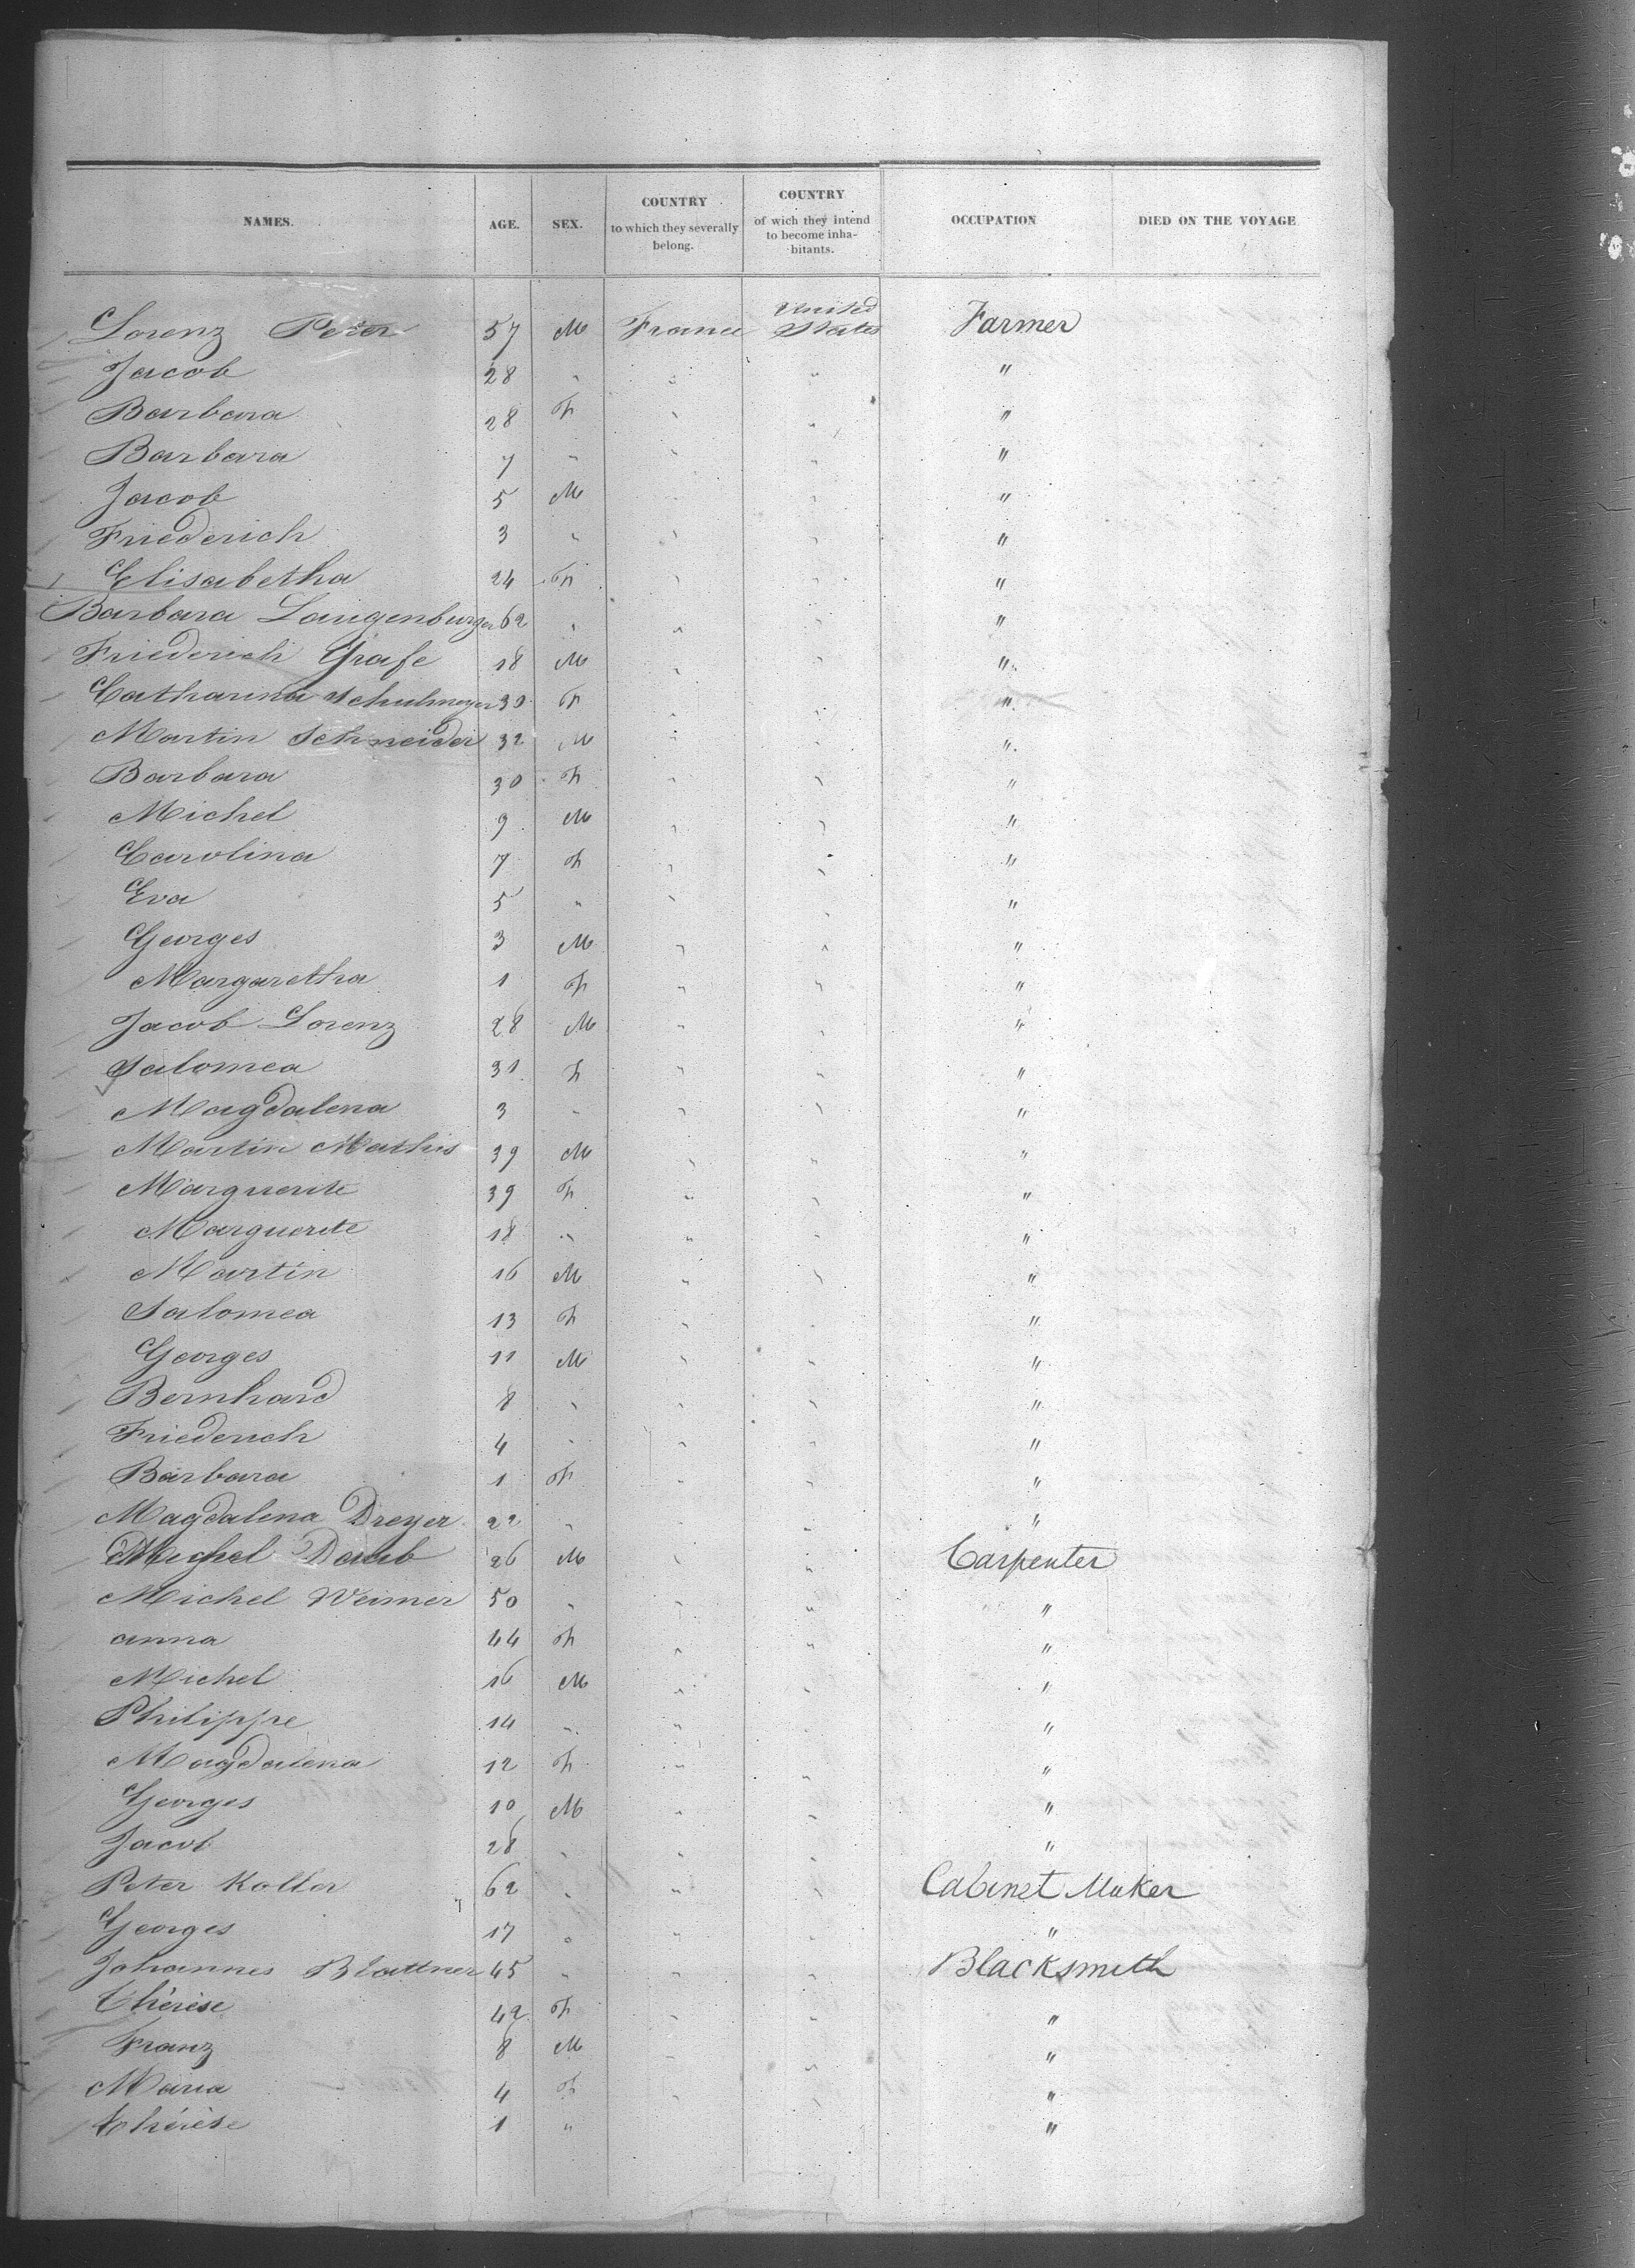 NAMES. AGE. SEX. COUNTRY to which they severally belong. COUNTRY of wich they intend to become inhabitants. OCCUPATION DIED ON THE VOYAGE
Lorenz Peter 57 M France United States Farmer
Jacob 28 " " " "
Barbara 28 F " " "
Barbara 7 " " " "
Jacob 5 M " "
Friederich 3 " " " "
Elisabetha 24 F " " "
Barbara Langenburger 62 " " " "
Friederich Grafe 18 M " " "
Catharina Schulmeyer 30 F " " "
Martin Schneider 32 M " " "
Barbara 30 F " " "
Michel 9 M " " "
Carolina 7 F " " "
Eva 5 " " " "
Georges 3 M " " "
Margaretha 1 F " " "
Jacob Lorenz 28 M " " "
Salomea 31 F " " "
Magdalena 3 " " " "
Martin Mathis 39 M " " "
Marguerite 39 F " " "
Marguerite 18 " " " "
Martin 16 M " " "
Salomea 13 F " " "
Georges 11 M " " "
Bernhard 8 " " " "
Friederich 4 " " " "
Barbara 1 F " " "
Magdalena Dreyer 22 " " " "
Michel Daub 26 M " " Carpenter
Michel Weimer 50 " " " "
anna 44 F " " "
Michel 16 M " " "
Philippe 14 " " " "
Magdalena 12 F " " "
Georges 10 M " " "
Jacob 28 " " " "
Peter Kolter 62 " " " Cabinet Maker
Georges 17 " " " "
Johannes Blattner 45 " " " Blacksmith
Thérèse 42 F " " "
Franz 8 M " " "
Maria 4 F " " "
Thérèse 1 " "